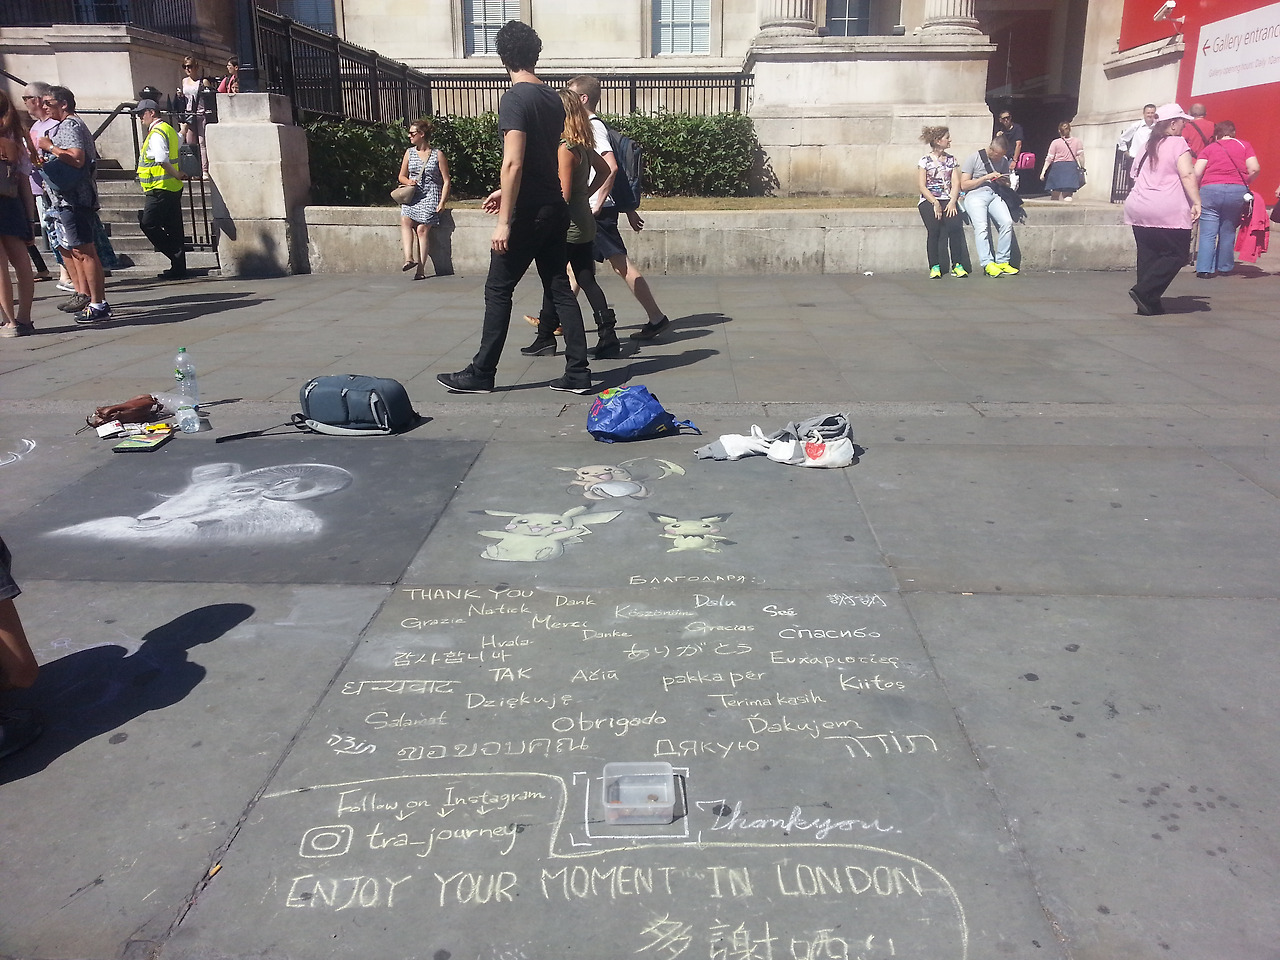 ← Gallery entrance
Gallery opening hours: Daily 10am
Благодаря :)
THANK YOU Dank Dalu 謝謝
Natick Köszönöm Seé
Grazie Merci Gracias спасибо
Hvala Danke
감사합니다 ありがとう Ευχαριστίες
TAK Ačiū pakka pér Kiitos
धन्यवाद
Dziękuję Terima kasih
Salamat Obrigado Ďakujem
תודה ขอขอบคุณ дякую תודה
Follow on Instagram
tra_journey
Thankyou.
ENJOY YOUR MOMENT IN LONDON
多謝晒!!